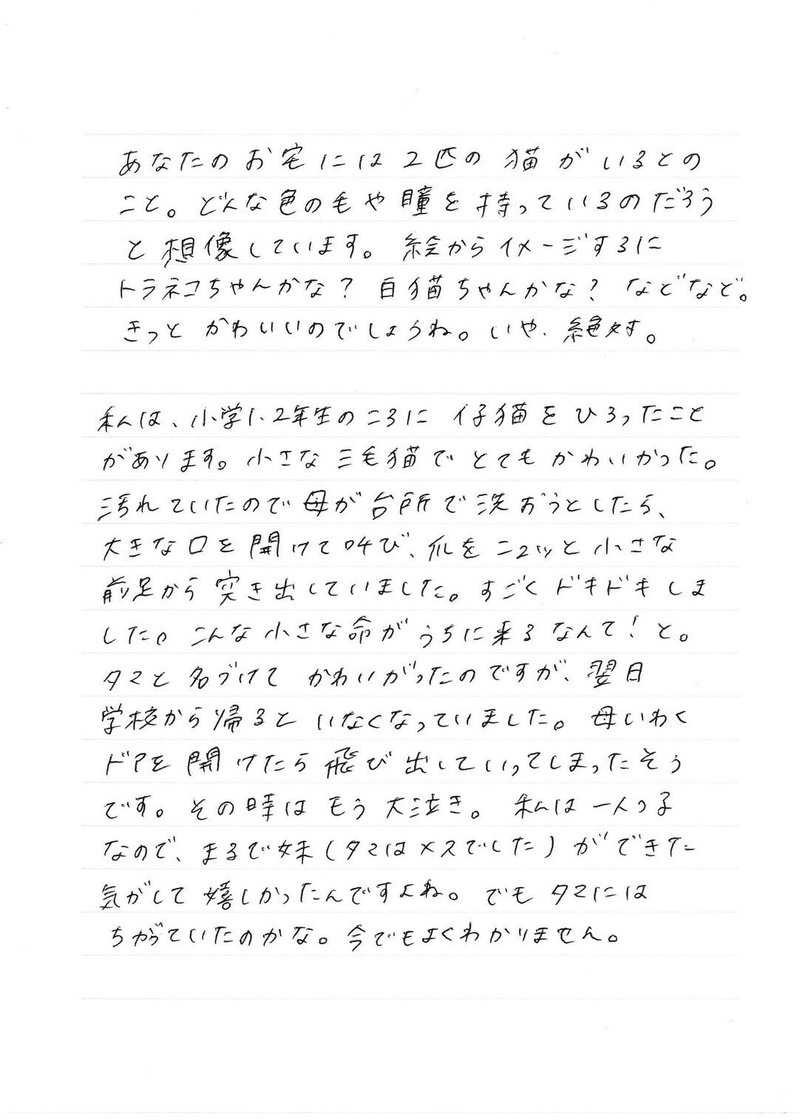 あなたのお宅には2匹の猫がいるとの
こと。どんな色の毛や瞳を持っているのだろう
と想像しています。絵からイメージするに
トラネコちゃんかな？白猫ちゃんかな？などなど。
きっとかわいいのでしょうね。いや、絶対。
私は、小学1、2年生のころに仔猫をひろったこと
があります。小さな三毛猫でとてもかわいかった。
汚れていたので母が台所で洗おうとしたら、
大きな口を開けて叫び、爪をニュッと小さな
前足から突き出していました。すごくドキドキしま
した。こんな小さな命がうちに来るなんて！と。
タマと名づけてかわいがったのですが、翌日
学校から帰るといなくなっていました。母いわく
ドアを開けたら飛び出していってしまったそう
です。その時はもう大泣き。私は一人っ子
なので、まるで妹（タマはメスでした）ができた
気がして嬉しかったんですよね。でもタマには
ちがっていたのかな。今でもよくわかりません。